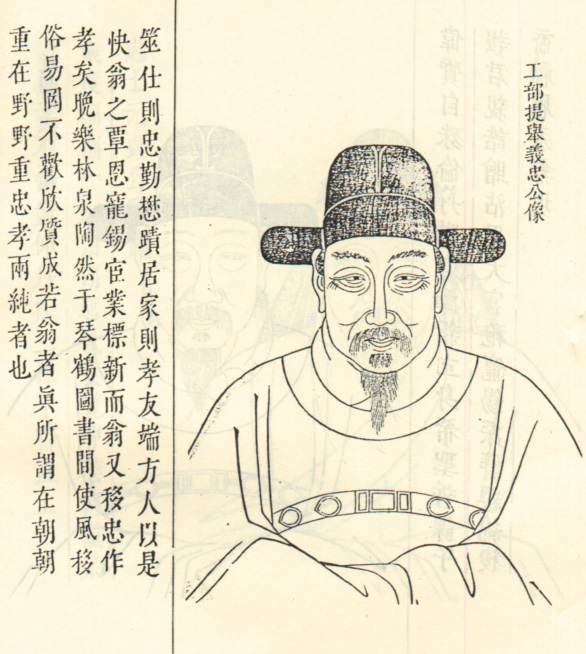 工部提舉義忠公像
筮仕則忠勤懋蹟居家則孝友端方人以是
快翁之覃恩寵錫宦業標新而翁又移忠作
孝矣晚樂林泉陶然于琴鶴圖書間使風移
俗易罔不歡欣質成若翁者眞所謂在朝朝
重在野野重忠孝兩純者也